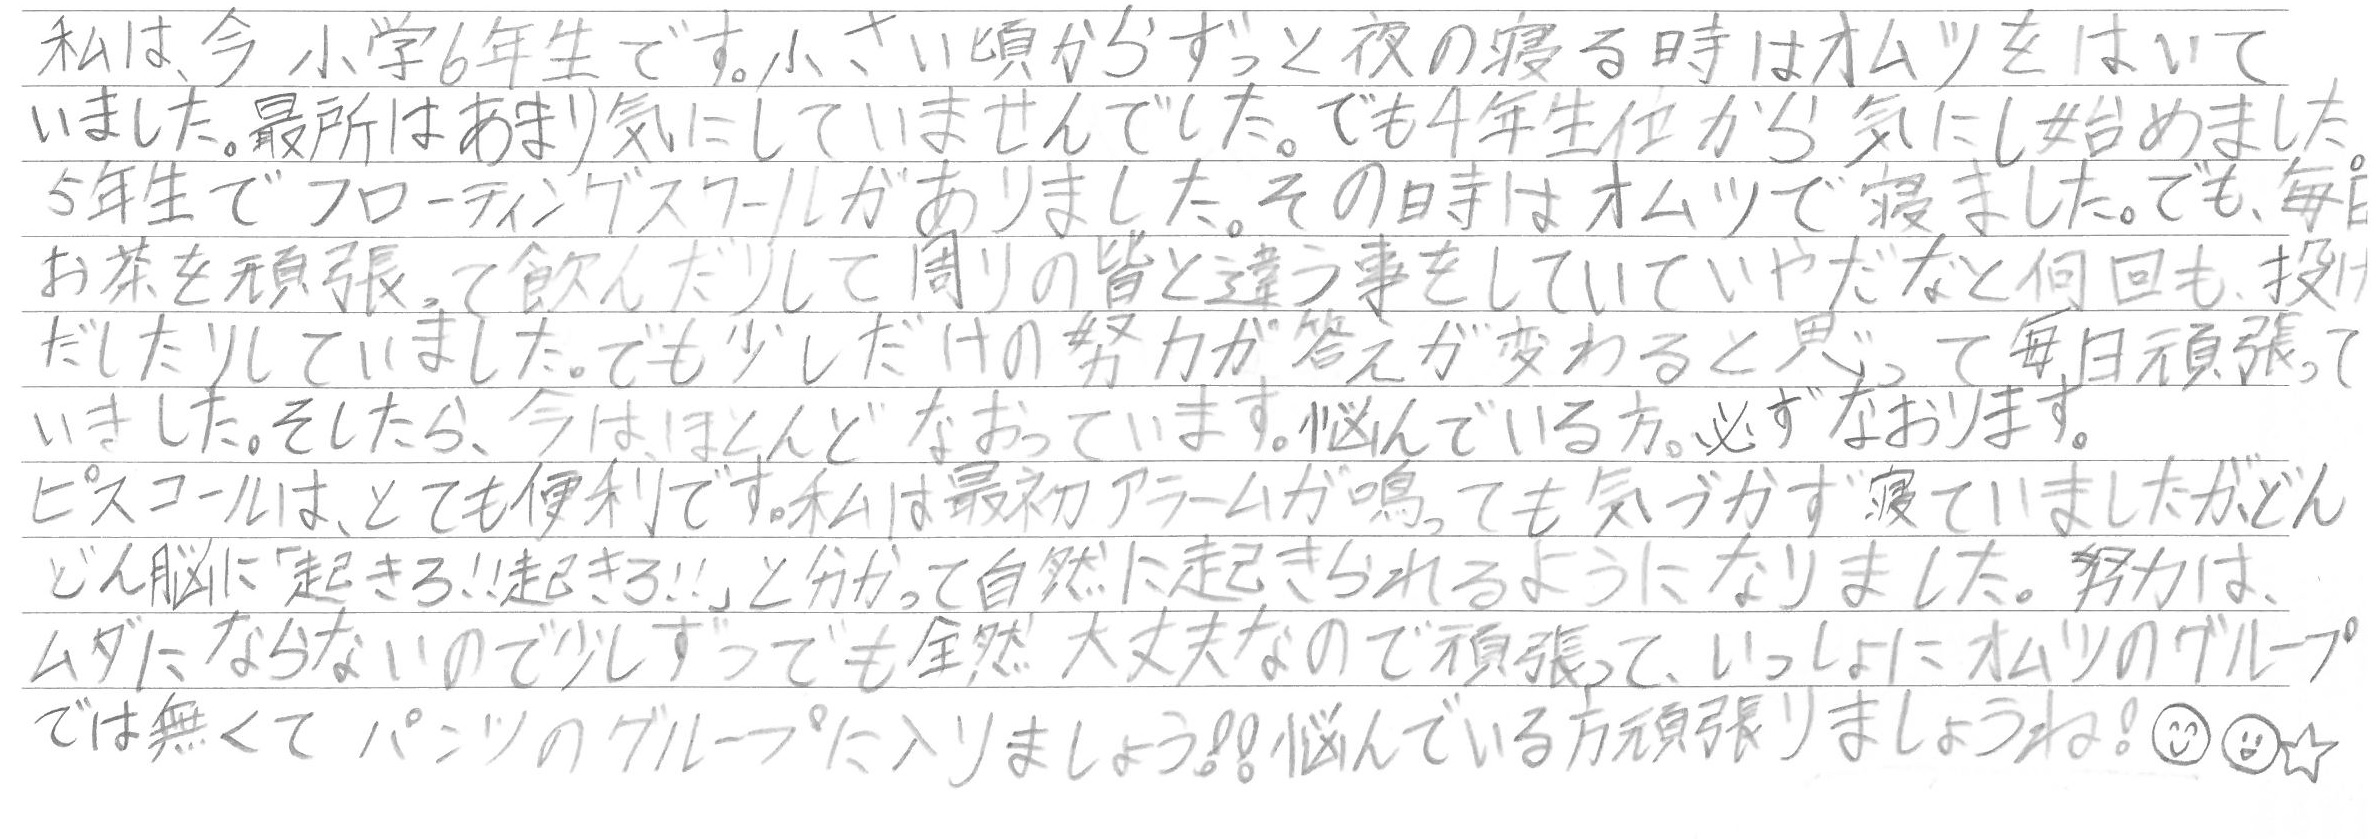 私は、今 小学6年生です。小さい頃からずっと夜の寝る時はオムツをはいて
いました。最所はあまり気にしていませんでした。でも4年生位から気にし始めました。
5年生でフローティングスクールがありました。その時はオムツで寝ました。でも、毎日
お茶を頑張って飲んだりして周りの皆と違う事をしていていやだなと何回も、投げ
だしたりしていました。でも少しだけの努力が答えが変わると思って毎日頑張って
いきました。そしたら、今は、ほとんどなおっています。悩んでいる方。必ずなおります。
ピスコールは、とても便利です。私は最初アラームが鳴っても気づかず寝ていましたが、どん
どん脳に「起きろ!!起きろ!!」と分かって自然に起きられるようになりました。努力は、
ムダにならないので少しずつでも全然大丈夫なので頑張って、いっしょにオムツのグループ
では無くてパンツのグループに入りましょう!!悩んでいる方頑張りましょうね!☺☺☆